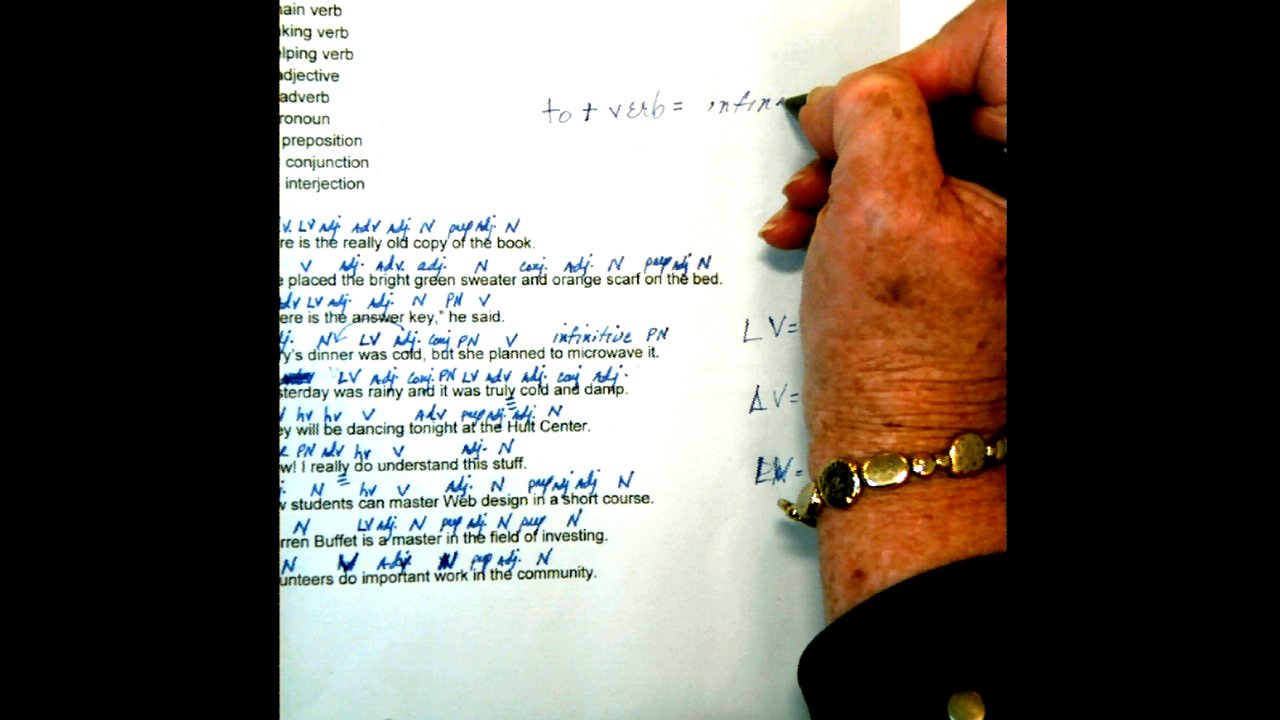 ain verb
king verb
lping verb
adjective
adverb
ronoun
preposition
conjunction
interjection
to + verb = infin
V. LV adj. Adv adj. N prep adj. N
re is the really old copy of the book.
V adj. Adv. adj. N conj. adj. N prep adj N
e placed the bright green sweater and orange scarf on the bed.
adv LV adj. adj. N PN V
ere is the answer key," he said.
j. N LV adj. conj PN V infinitive PN
y's dinner was cold, but she planned to microwave it.
LV adj conj. PN LV adv adj. conj adj.
sterday was rainy and it was truly cold and damp.
hv hv V Adv prep adj. adj. N
ey will be dancing tonight at the Hult Center.
PN adv hv V adj. N
w! I really do understand this stuff.
j. N hv V Adj. N prep adj adj N
w students can master Web design in a short course.
N LV adj. N prep adj. N prep N
rren Buffet is a master in the field of investing.
N V Adj N prep adj. N
unteers do important work in the community.
LV=
AV=